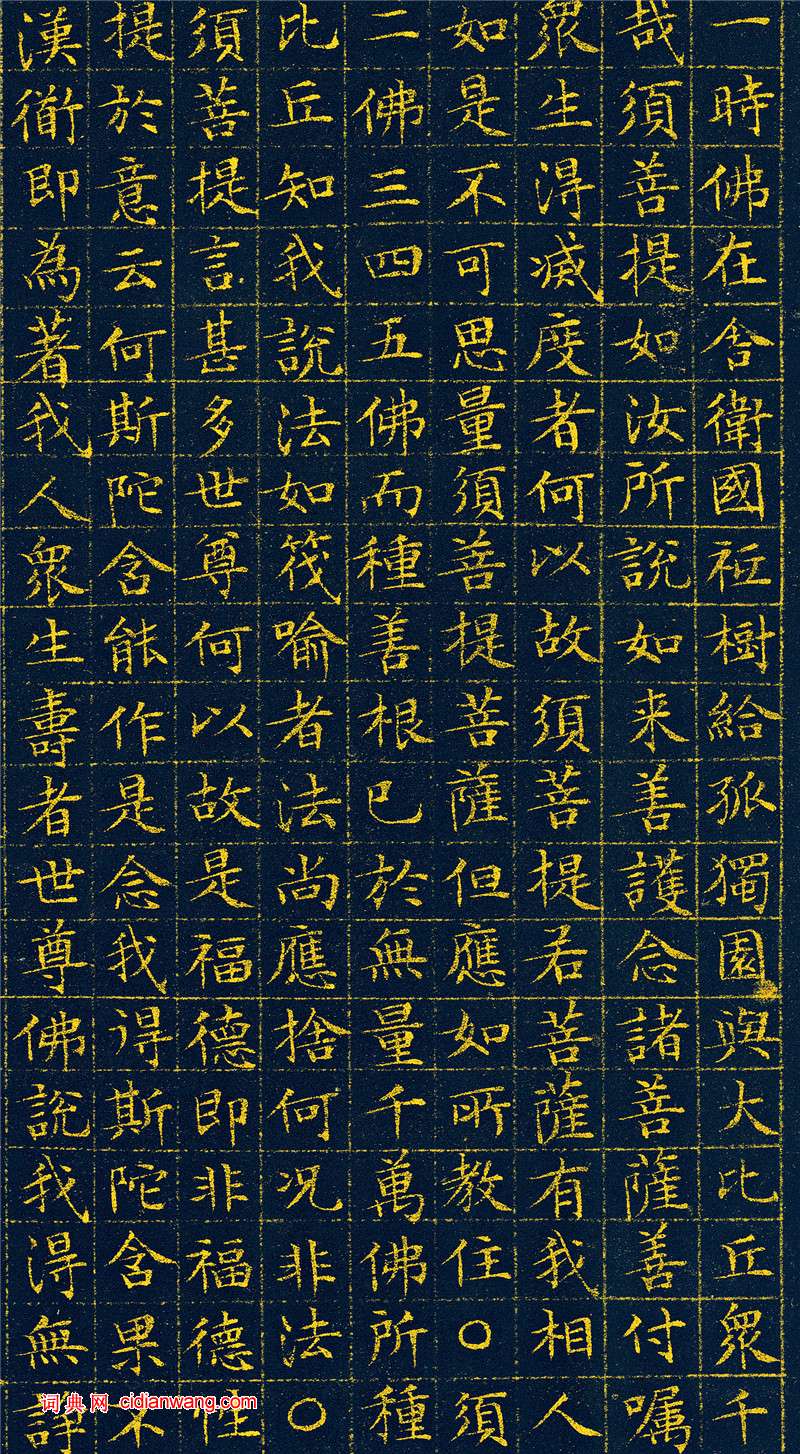 一時佛在舍衛國祇樹給孤獨園與大比丘眾千
哉須菩提如汝所說如来善護念諸菩薩善付嘱
眾生得滅度者何以故須菩提若菩薩有我相人
如是不可思量須菩提菩薩但應如所教住〇須
二佛三四五佛而種善根已於無量千萬佛所種
比丘知我說法如筏喻者法尚應捨何况非法〇
須菩提言甚多世尊何以故是福德即非福德性
提於意云何斯陀含能作是念我得斯陀含果不
漢衜即為著我人眾生壽者世尊佛說我得無諍
词典网 cidianwang.com